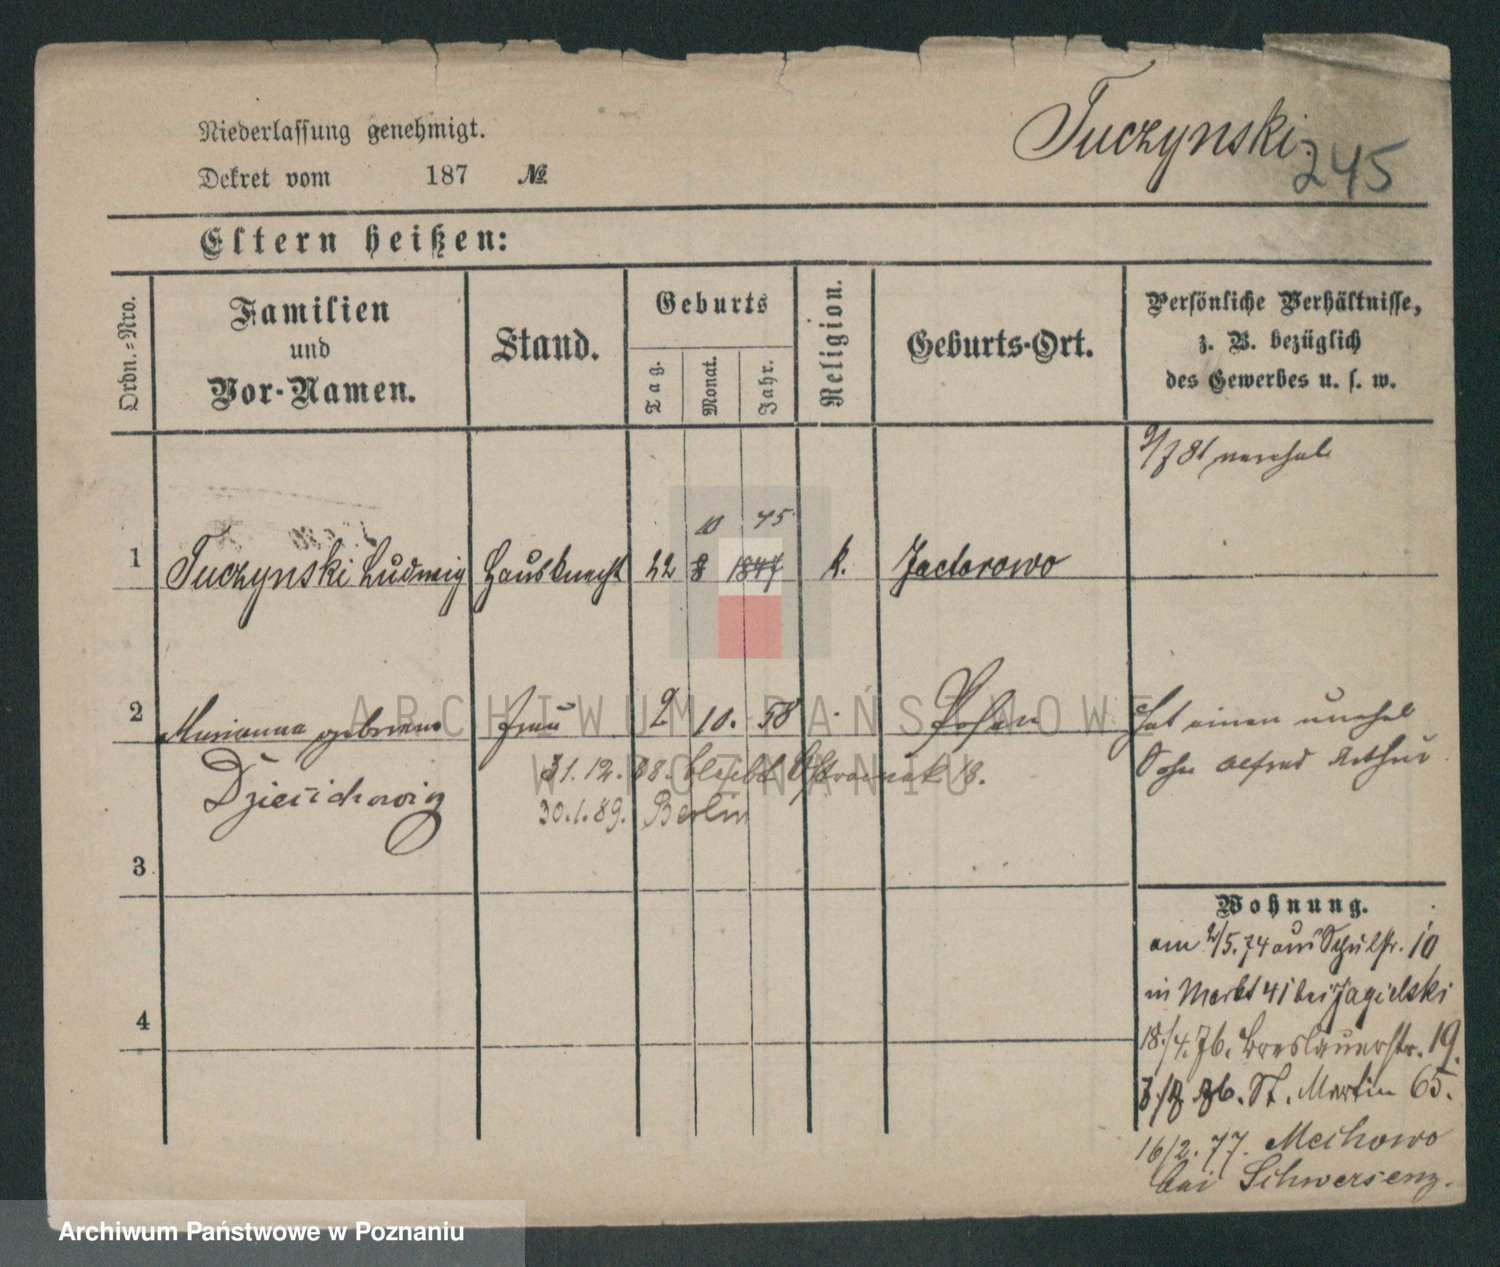 Niederlassung genehmigt.
Tuczynski.
245
Dekret vom 187 №
Eltern heißen:
Ordn.-Nro.
Familien
und
Vor-Namen.
Stand.
Geburts
Tag.
Monat.
Jahr.
Religion.
Geburts-Ort.
Persönliche Verhältnisse,
z. B. bezüglich
des Gewerbes u. s. w.
81
10 45
1 Tuczynski Ludwig Hausknecht 22 8 1847 k. Jactorowo
2 Marianna geborene Frau 2 10. 58 Posen
hat einen unehel
Dziecichowicz
Sohn Alfred Arthur
31. 12. 88. 18.
30.1.89. Berlin
3
Wohnung.
am 2/5.74 aus Schulstr. 10
in Markt 41 bei Jagielski
4
18./4.76. Breslauerstr. 19.
76. St. Martin 65.
16/2.77. Mechowo
bei Schwersenz.
ARCHIWUM PAŃSTWOWE
W POZNANIU
Archiwum Państwowe w Poznaniu